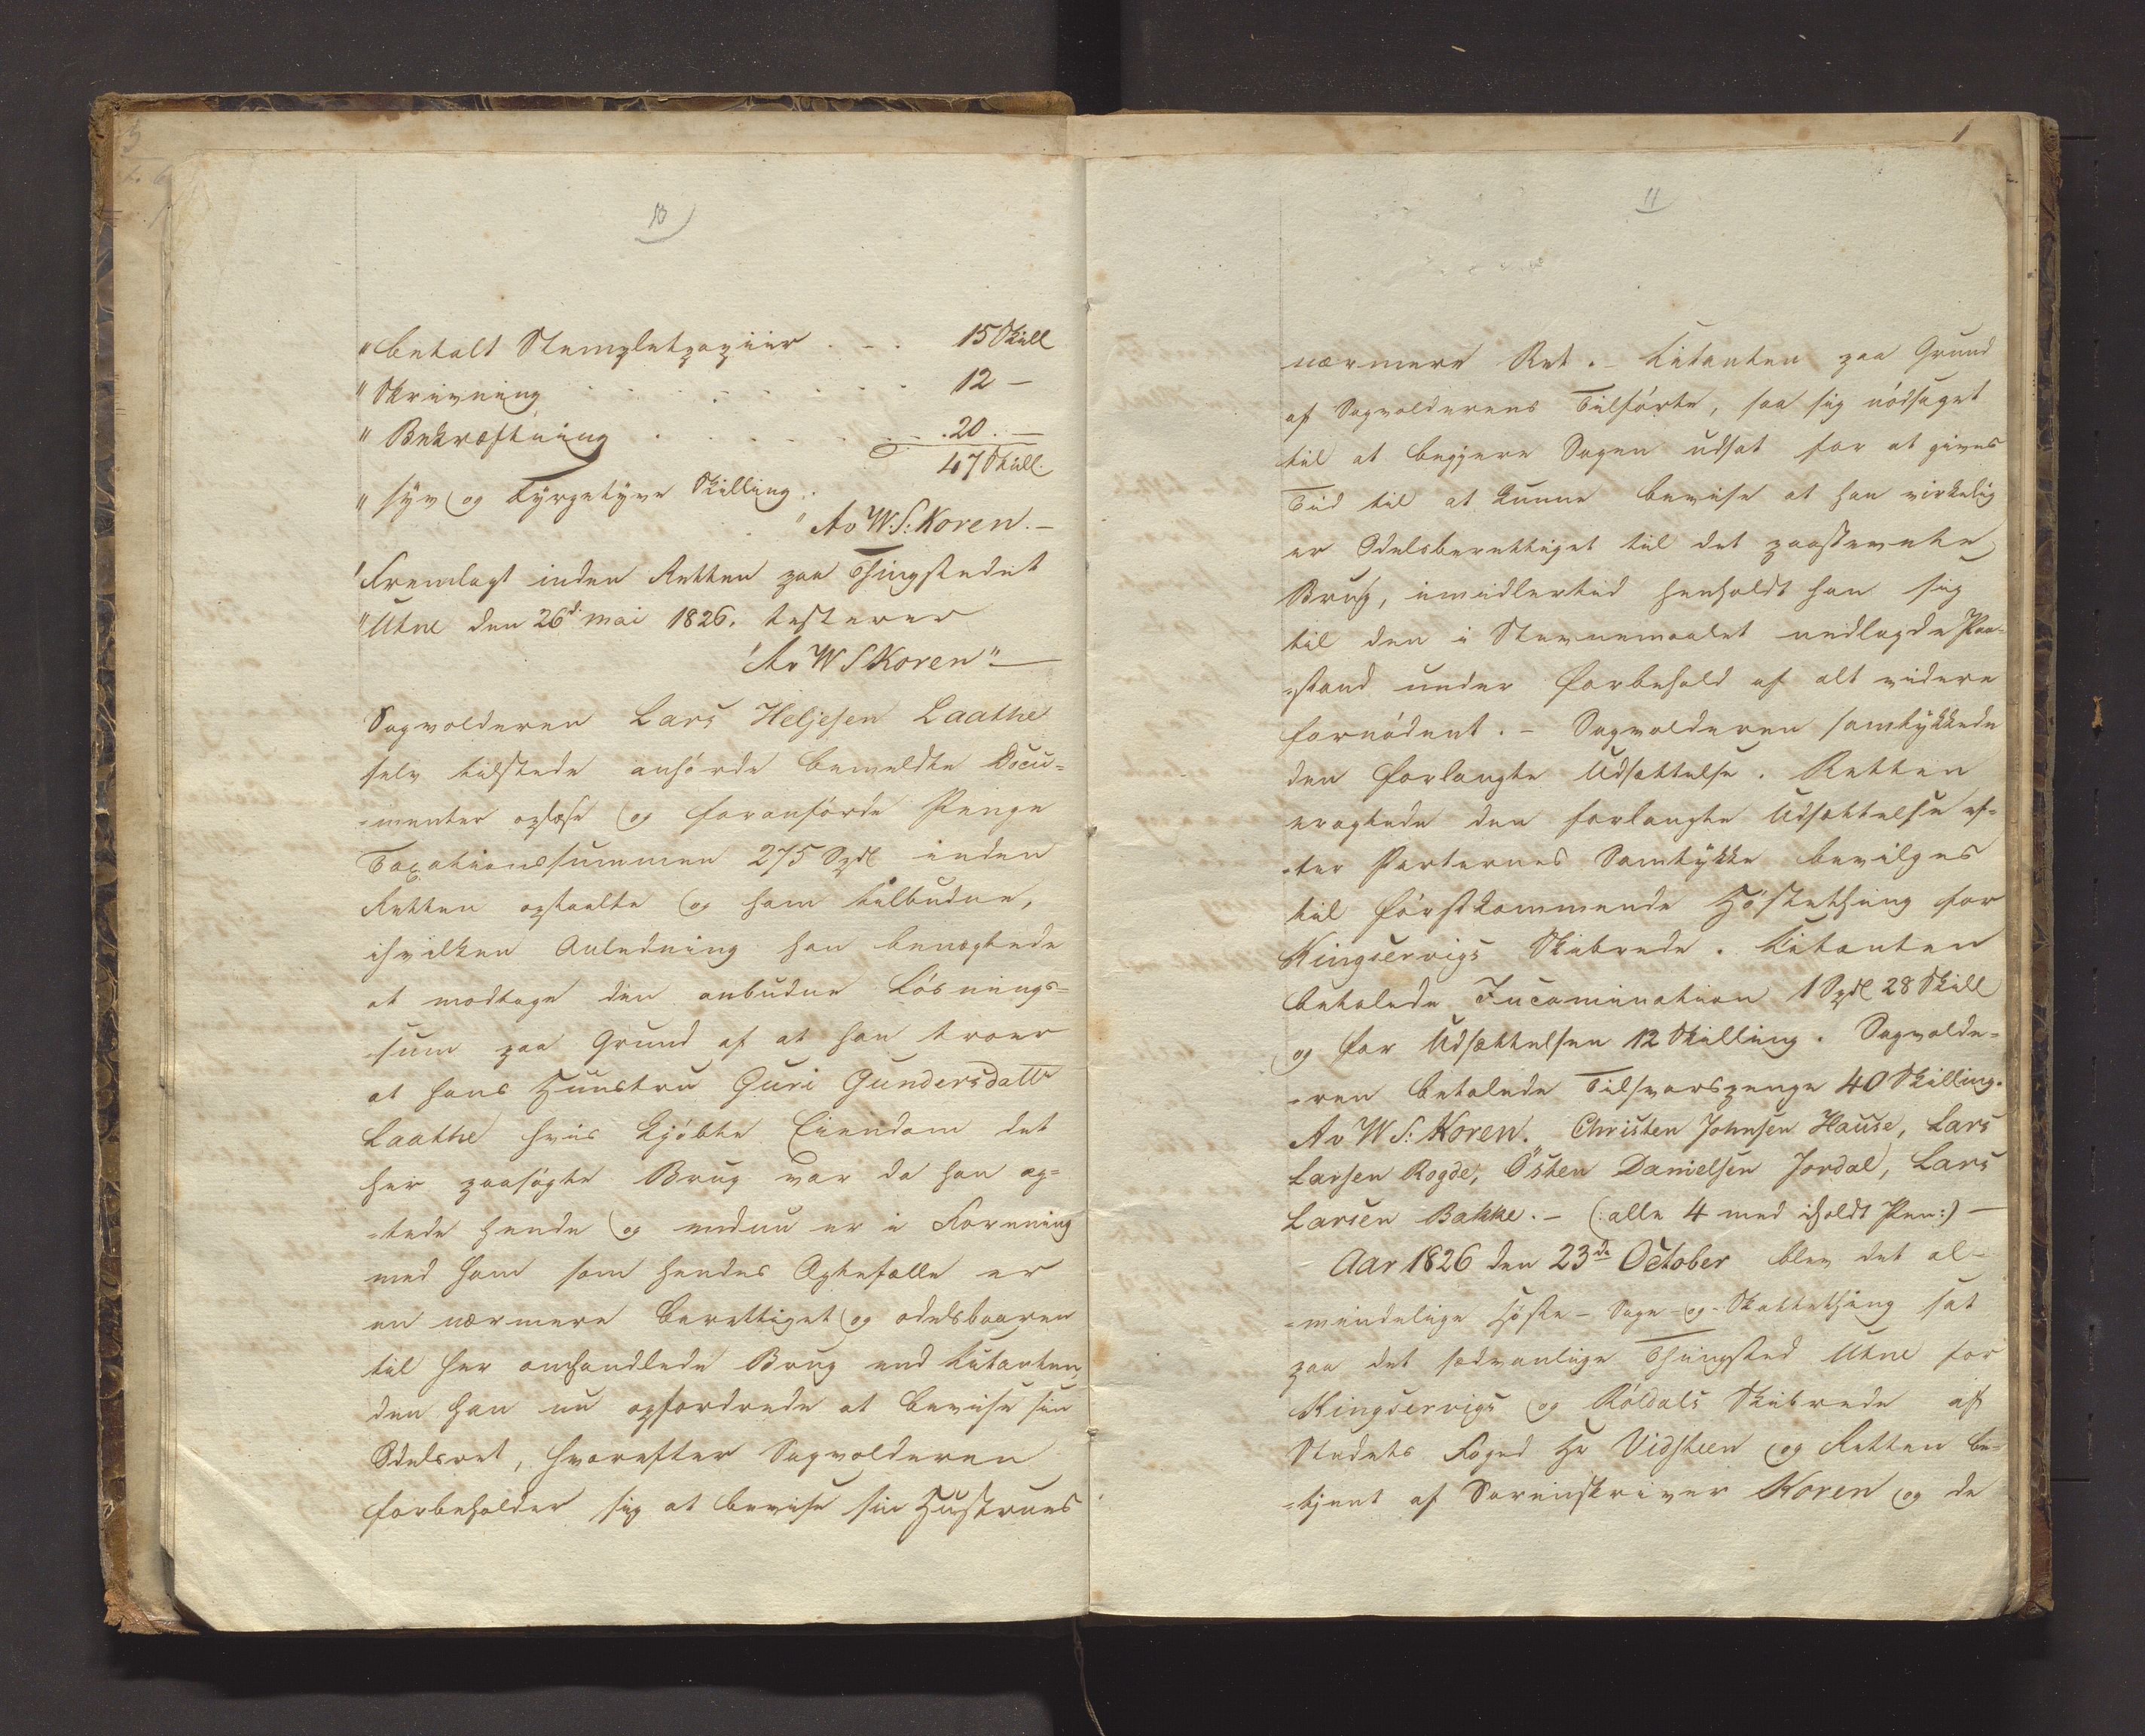 10
"betalt Stempletpapiir . - . 15 Skill
"Skrivning . . . . . . . . 12 —
"Bekræftning . . . . . . . 20 . —
47 Skill.
"syv og Fyrgetyve Skilling..
"A v W: S: Koren. —
"Fremlagt inden Retten paa Thingstedet
"Utne den 26d. mai 1826. testerer
"A v W S Koren". —
Sagvolderen Lars Heljesen Laathe
selv tilstede anhörde bemeldte Docu=
=menter oplæse og foranförde Penge
Taxationssummen 275 Spdl inden
Retten optaelte og ham tilbudne,
ihvilken Anledning han benægtede
at modtage den anbudne Lösnings=
=sum paa Grund af at han troer
at hans Huustru Guri Gundersdattr
Laathe hvis kjöbte Eiendom det
her paasögte Brug var da han æg=
=tede hende og endnu er i Forening
med ham som hendes Ægtefælle er
en nærmere berettiget og odelsbaaren
til her omhandlede Brug end Citanten,
den han nu opfordrede at bevise sin
Odelsret, hvorefter Sagvolderen
forbeholder sig at bevise sin Hustrues
11
nærmere Ret. – Citanten paa Grund
af Sagvolderens Tilförte, saa sig nödsaget
til at begjere Sagen udsat for at gives
Tid til at kunne bevise at han virkelig
er Odelsberettiget til det paastevnte
Brug, imidlertid henholdt han sig
til den i Stevnemaalet nedlagde Paa=
=stand under Forbehold af alt videre
fornödent. – Sagvolderen samtykkede
den forlangte Udsættelse. Retten
eragtede den forlangte Udsættelse ef=
=ter Parternes Samtykke bevilges
til förstkommende Höstething for
Kingservigs Skibrede. Citanten
betalede Incamination 1 Spdl 28 Skill
og for Udsættelsen 12 Skilling. Sagvolde=
=ren betalede Tilsvarspenge 40 Skilling.
A v W S: Koren. Christen Johnsen Hause, Lars
Larsen Rogde, Östen Danielsen Jordal, Lars
Larsen Bakke. – (: alle 4 med iholdt Pen :) —
Aar 1826 den 23de October blev det al=
=mindelige Höste- Sage- og Skattething sat
paa det sædvanlige Thingsted Utne for
Kingservigs og Röldals Skibrede af
Stedets Foged Hr Vidsteen og Retten be=
=tjent af Sorenskriver Koren og de